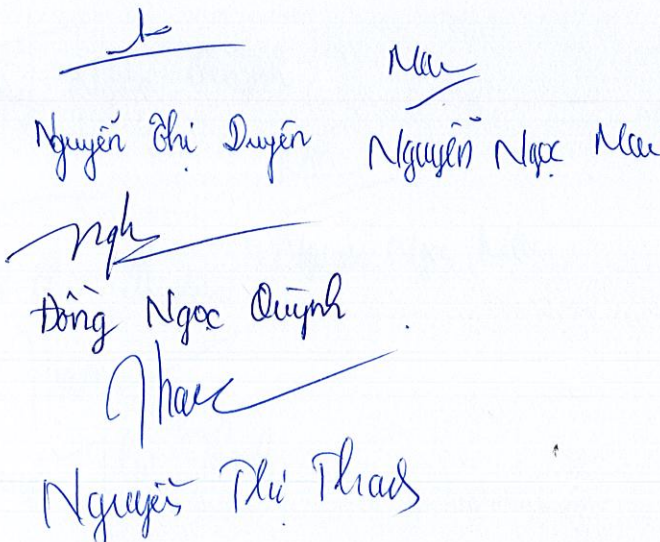 Nguyễn Thị Duyên
Nguyễn Ngọc Mai
Đồng Ngọc Quỳnh
Nguyễn Thị Thanh